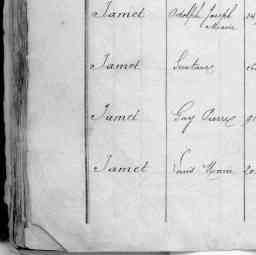 Jamet Adolph Joseph
Marie
Jamet Gustave
Jamet Guy Pierre
Jamet Louis Marie 20